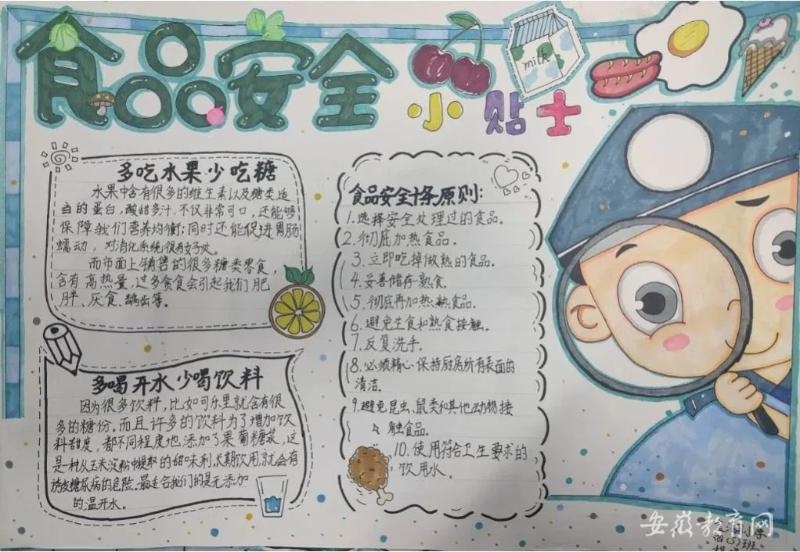 食品安全
小贴士
milk
多吃水果少吃糖
水果中含有很多的维生素以及糖类适
当的蛋白，酸甜多汁，不仅非常可口，还能够
保障我们营养均衡，同时还能促进胃肠
蠕动，对消化系统很有好处。
而市面上销售的很多糖类零食，
含有高热量，过多食会引起我们肥
胖、厌食、龋齿等。
多喝开水少喝饮料
因为很多饮料，比如可乐里就会有很
多的糖份，而且许多的饮料为了增加饮
料甜度，都不同程度地添加了果葡糖浆，这
是一种从玉米淀粉中提取的甜味剂，长期饮用就会有
诱发糖尿病的危险。最适合我们的是无添加
的温开水。
食品安全十条原则：
1.选择安全处理过的食品。
2.彻底加热食品。
3.立即吃掉做熟的食品。
4.妥善储存熟食。
5.彻底再加热熟食品。
6.避免生食和熟食接触。
7.反复洗手。
8.必须精心保持厨房所有表面的
清洁。
9.避免昆虫、鼠类和其他动物接
触食品。
10.使用符合卫生要求的
饮用水。
安徽教育网